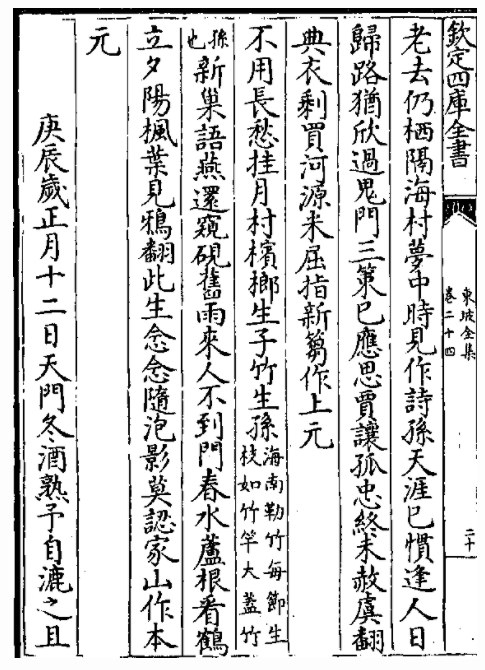 欽定四庫全書
東坡全集
卷二十四
二十
老去仍栖隔海村夢中時見作詩孫天涯已慣逢人日
歸路猶欣過鬼門三策已應思賈讓孤忠終未赦虞翻
典衣剩買河源米屈指新篘作上元
不用長愁挂月村檳榔生子竹生孫海南勒竹每節生
枝如竹竿大蓋竹
孫
也新巢語燕還窺硯舊雨來人不到門春水蘆根看鶴
立夕陽楓葉見鴉翻此生念念隨泡影莫認家山作本
元
庚辰歲正月十二日天門冬酒熟予自漉之且